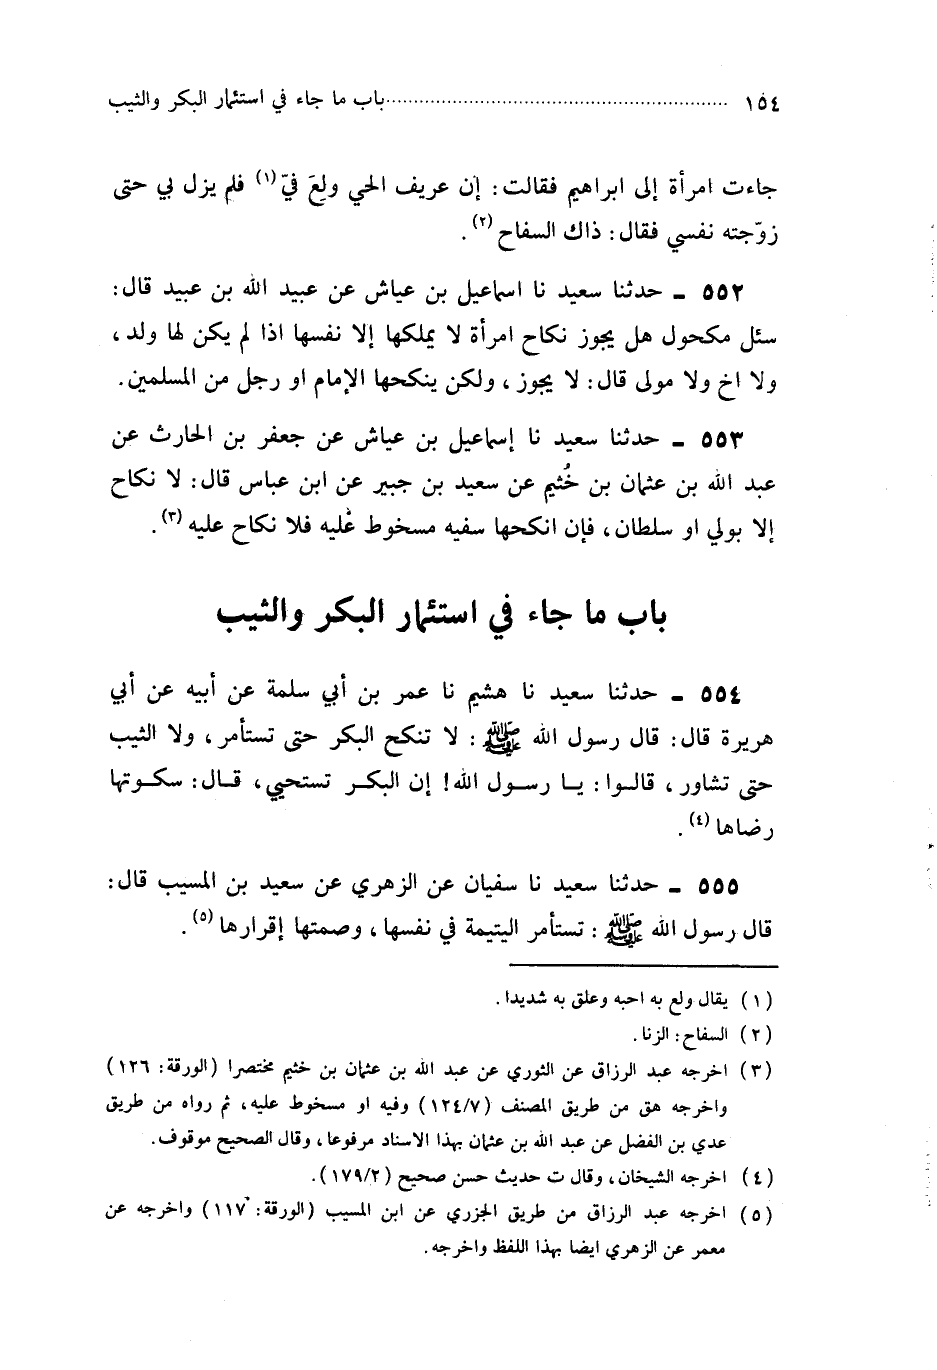 ١٥٤ ........................................................ باب ما جاء في استئمار البكر والثيب
جاءت امرأة إلى ابراهيم فقالت: إن عريف الحي ولعَ فيّ (١) فلم يزل بي حتى
زوّجته نفسي فقال: ذاك السفاح (٢).
٥٥٢ ـ حدثنا سعيد نا اسماعيل بن عياش عن عبيد الله بن عبيد قال:
سئل مكحول هل يجوز نكاح امرأة لا يملكها إلا نفسها اذا لم يكن لها ولد،
ولا اخ ولا مولى قال: لا يجوز، ولكن ينكحها الإمام او رجل من المسلمين.
٥٥٣ ـ حدثنا سعيد نا إسماعيل بن عياش عن جعفر بن الحارث عن
عبد الله بن عثمان بن خُثيم عن سعيد بن جبير عن ابن عباس قال: لا نكاح
إلا بولي او سلطان، فإن انكحها سفيه مسخوط عليه فلا نكاح عليه (٣).
باب ما جاء في استئمار البكر والثيب
٥٥٤ ـ حدثنا سعيد نا هشيم نا عمر بن أبي سلمة عن أبيه عن أبي
هريرة قال: قال رسول الله ﷺ : لا تنكح البكر حتى تستأمر، ولا الثيب
حتى تشاور، قالوا: يا رسول الله! إن البكر تستحيي، قال: سكوتها
رضاها (٤).
٥٥٥ ـ حدثنا سعيد نا سفيان عن الزهري عن سعيد بن المسيب قال:
قال رسول الله ﷺ : تستأمر اليتيمة في نفسها، وصمتها إقرارها (٥).
(١) يقال ولع به احبه وعلق به شديدا.
(٢) السفاح: الزنا.
(٣) اخرجه عبد الرزاق عن الثوري عن عبد الله بن عثمان بن خثيم مختصرا (الورقة: ١٢٦)
واخرجه هق من طريق المصنف (١٢٤/٧) وفيه او مسخوط عليه، ثم رواه من طريق
عدي بن الفضل عن عبد الله بن عثمان بهذا الاسناد مرفوعا، وقال الصحيح موقوف.
(٤) اخرجه الشيخان، وقال ت حديث حسن صحيح (١٧٩/٢).
(٥) اخرجه عبد الرزاق من طريق الجزري عن ابن المسيب (الورقة: ١١٧) واخرجه عن
معمر عن الزهري ايضا بهذا اللفظ واخرجه.